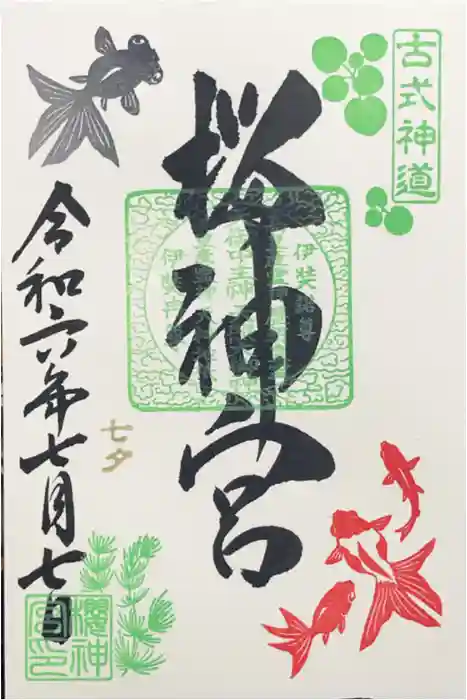 古式神道
桜神宮
令和六年七月七日
七夕
櫻神
宮印